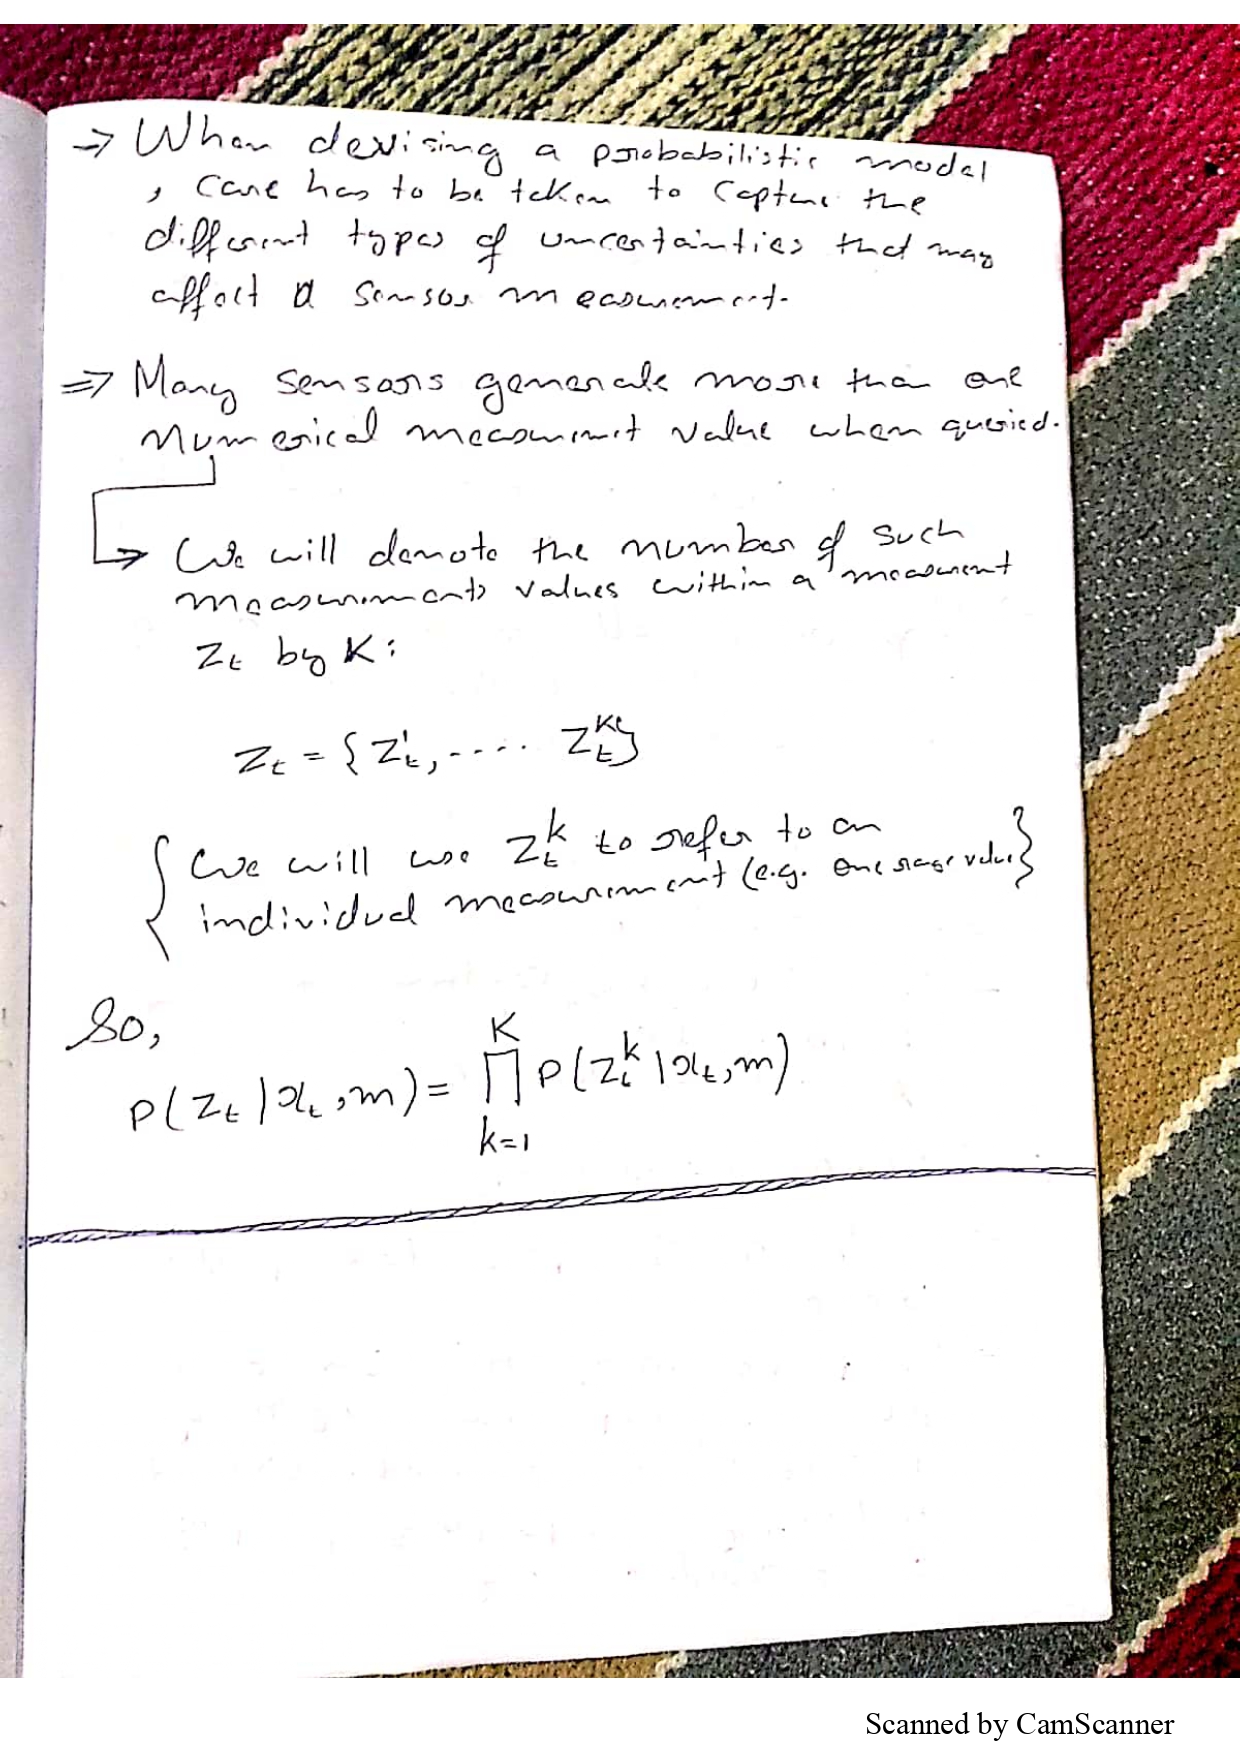 → When devising a probabilistic model
, care has to be taken to capture the
different types of uncertainties that may
affect a sensor measurement.
⇒ Many sensors generate more than one
numerical measurement value when queried.
→ We will denote the number of such
measurements values within a measurement
Zt by K:
Zt = {Z¹t, .... Zᴷt}
{ We will use Zᵏt to refer to an
individual measurement (e.g. one range value) }
So,
P(Zt | xt, m) = ∏ P(Zᵏt | xt, m)
K
k=1
Scanned by CamScanner